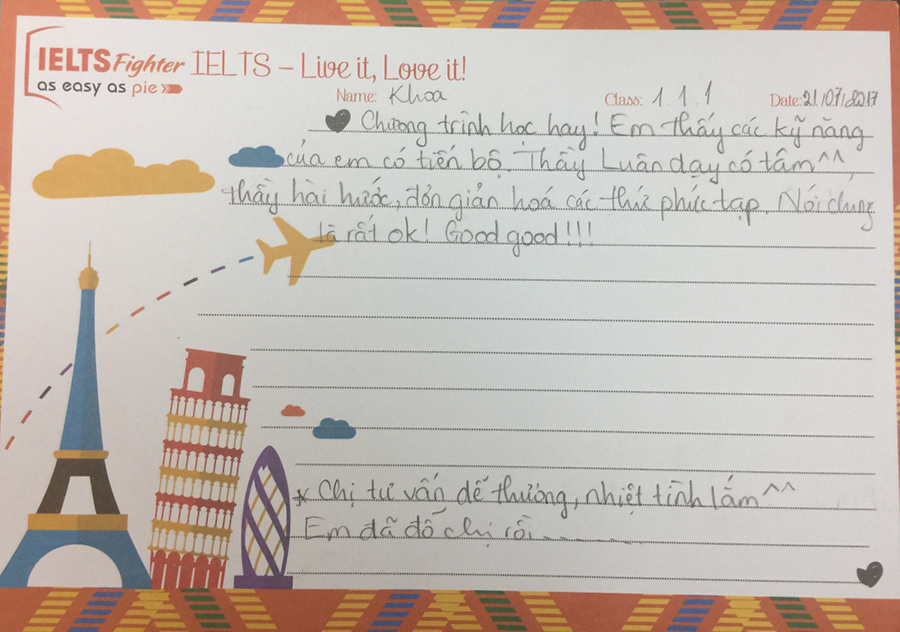 IELTS Fighter IELTS – Live it, Love it!
as easy as pie
Name: Khoa Class: 1.1.1 Date: 21/07/2017
♥ Chương trình học hay! Em thấy các kỹ năng
của em có tiến bộ. Thầy Luân dạy có tâm^^
Thầy hài hước, đơn giản hoá các thứ phức tạp. Nói chung
là rất ok! Good good!!!
* Chị tư vấn dễ thương, nhiệt tình lắm^^
Em đã đổ chị rồi.........